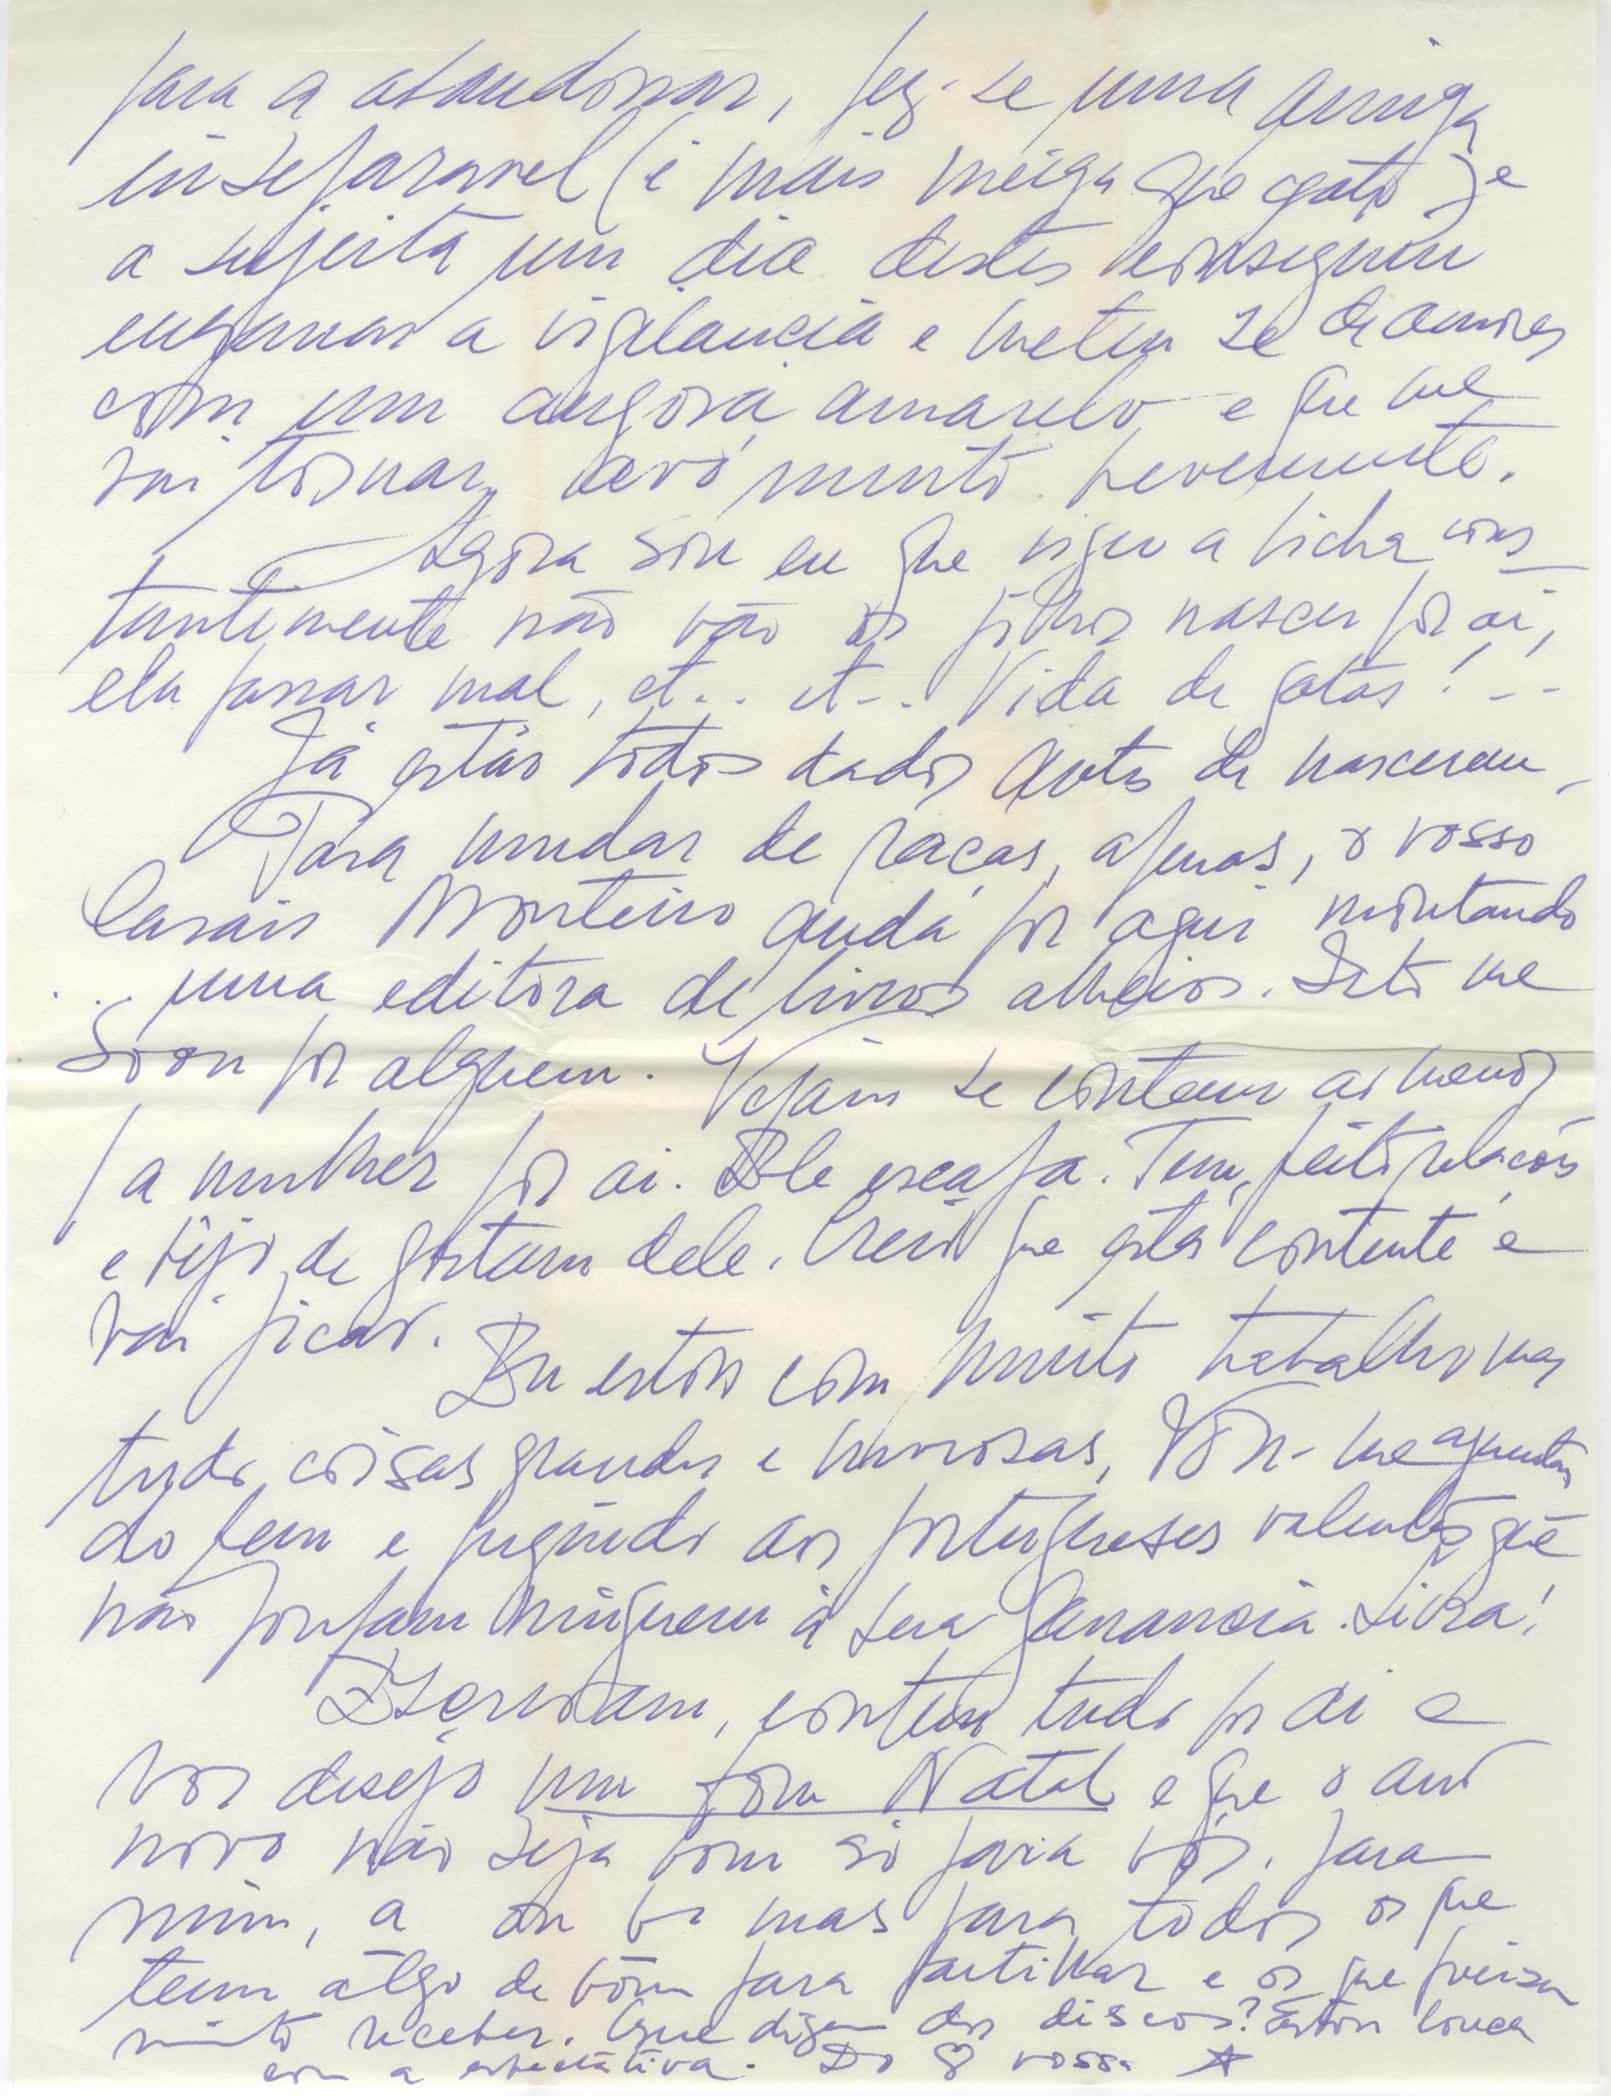 para a abandonar, fez-se uma amiga
inseparavel (é mais meiga que gato) e
a sujeita um dia destes conseguiu
enganar a vigilancia e meteu se de amores
com um angorá amarelo e que me
vai tornar avó muito brevemente.
Agora sou eu que vigio a bicha cons
tantemente não vão os filhos nascer por ai,
ela passar mal, et... et... Vida de gatas!...
Já estão todos dados antes de nascerem.
Para mudar de raças, apenas, o vosso
Casais Monteiro anda por aqui montando
... uma editora de livros alheios. Isto me
soou por alguem. Vejam se contam ao menos
/ a mulher por ai. Ele escapa. Tem feito relações
e vejo que gostam dele. Creio que está contente e
vai ficar.
Eu estou com muito trabalho mas
tudo coisas grandes e morosas, Vou-me aguentan
do bem e fugindo aos portugueses valentes que
não poupam ninguem à sua ganancia. Livra!
Escrevam, contem tudo por ai e
vos desejo um bom Natal e que o ano
novo não seja bom só para vós, para
mim, a ou b mas para todos os que
tem algo de bom para partilhar e os que precisam
muito receber. Que dizem dos discos? Estou louca
com a espectativa. Do ♡ vossa ☆